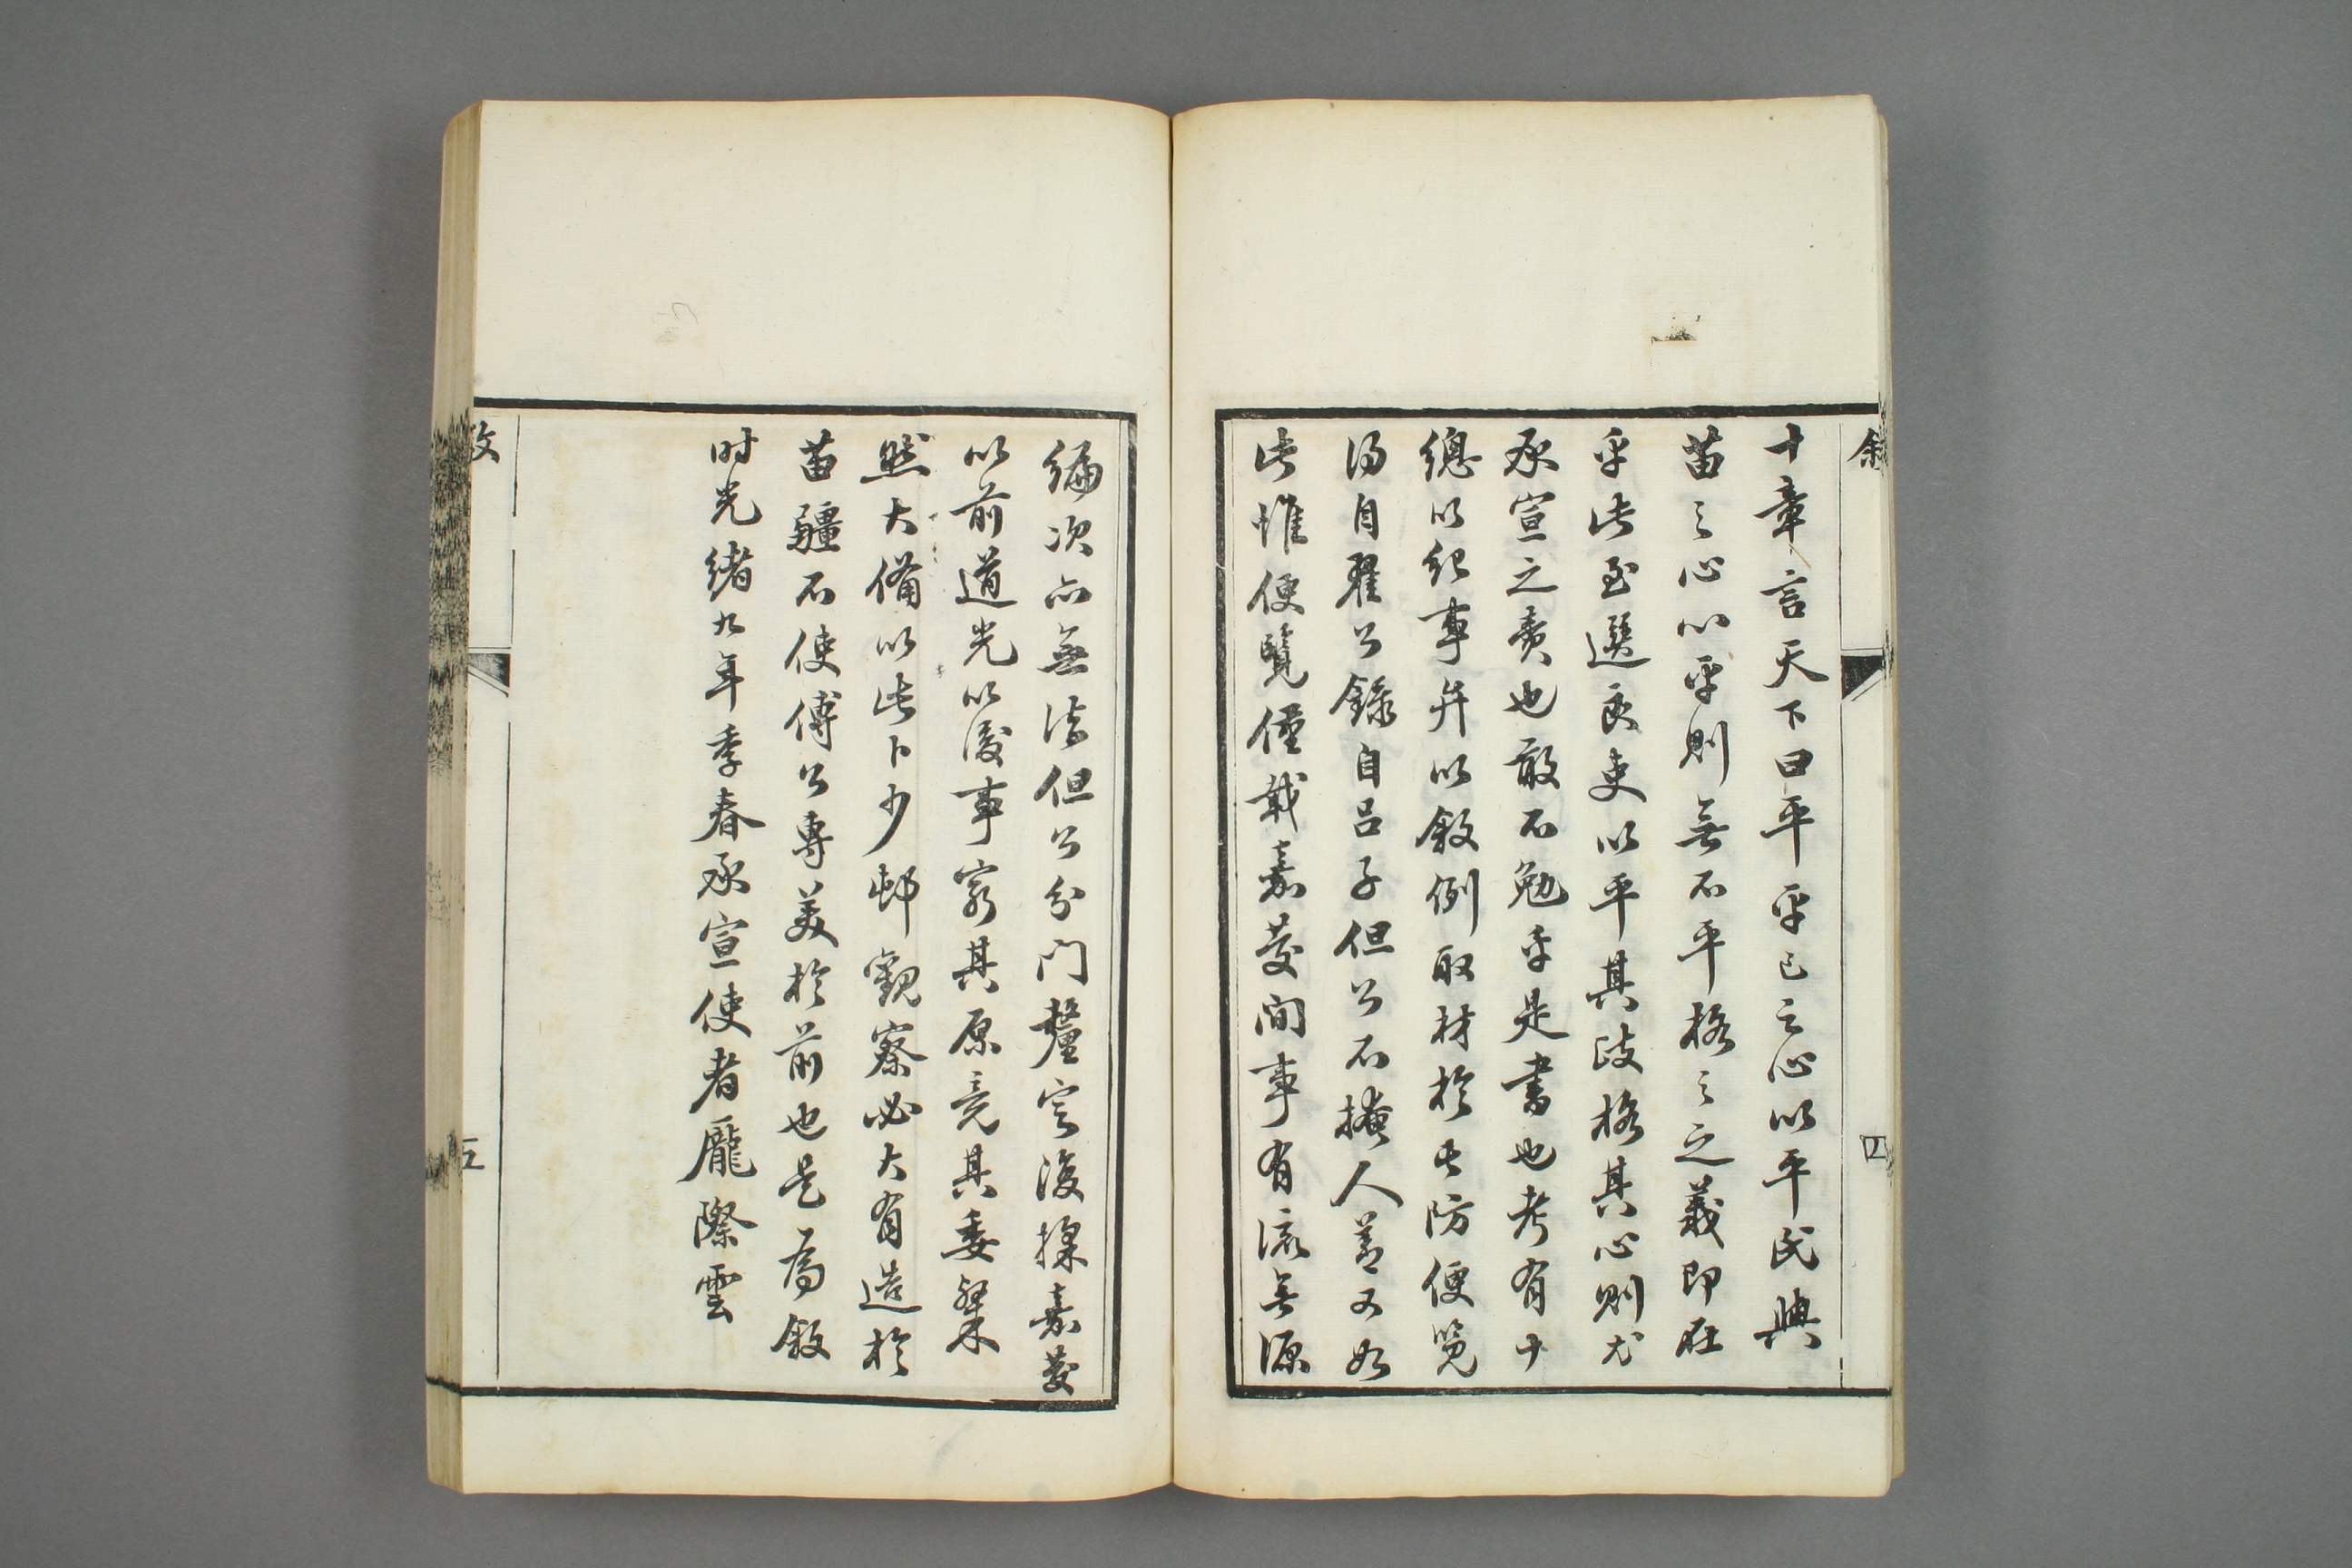 叙
四
十章言天下曰平平己之心以平民與
苗之心心平則無不平格之之義即在
乎此至選良吏以平其政格其心則尤
承宣之責也敢不勉乎是書也考有十
總以紀事并以敘例取材於七防便覽
得自翟公錄自呂子但公不掩人善又如
此惟便覽僅載嘉慶間事有流無源
編次亦無法但公分門釐定後採嘉慶
以前道光以後事窮其原竟其委粲
然大備以此卜少邨觀察必大有造於
苗疆不使傅公專美於前也是為敘
时光緒九年季春承宣使者龐際雲
五